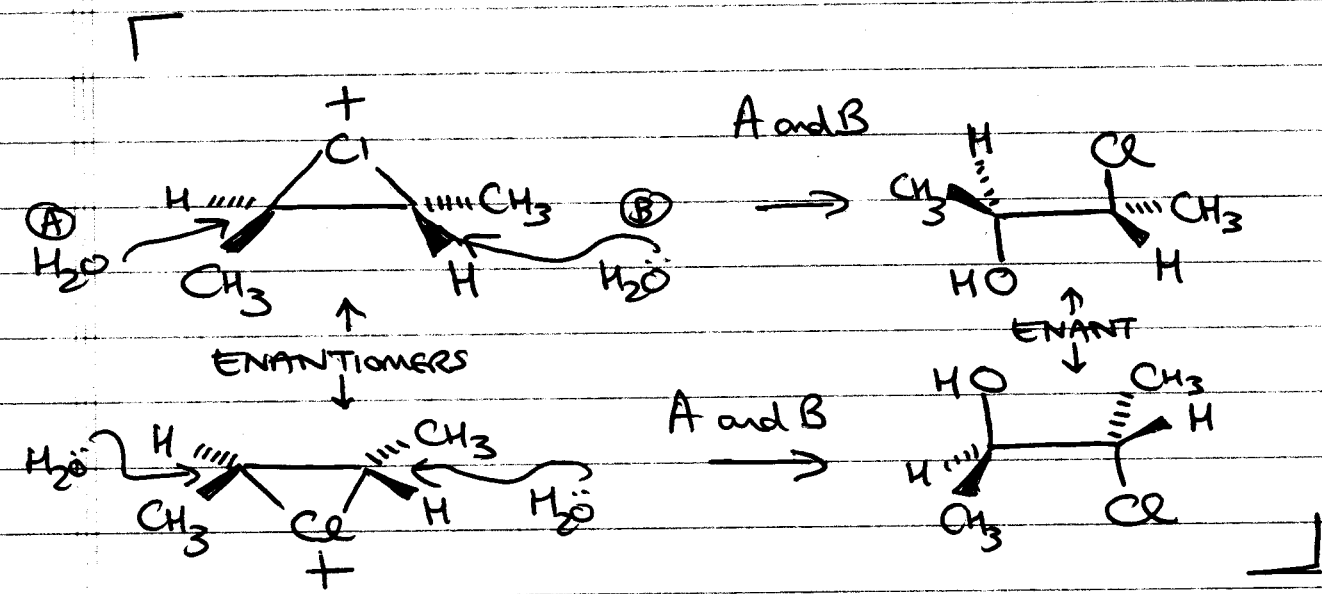 +
Cl
A and B
H
Cl
H
CH3
CH3
CH3
A
B
H2O
CH3
H
H2O
HO
H
ENANTIOMERS
ENANT
HO
CH3
H
CH3
A and B
H
H2O
H
CH3
Cl
H
H2O
CH3
Cl
+